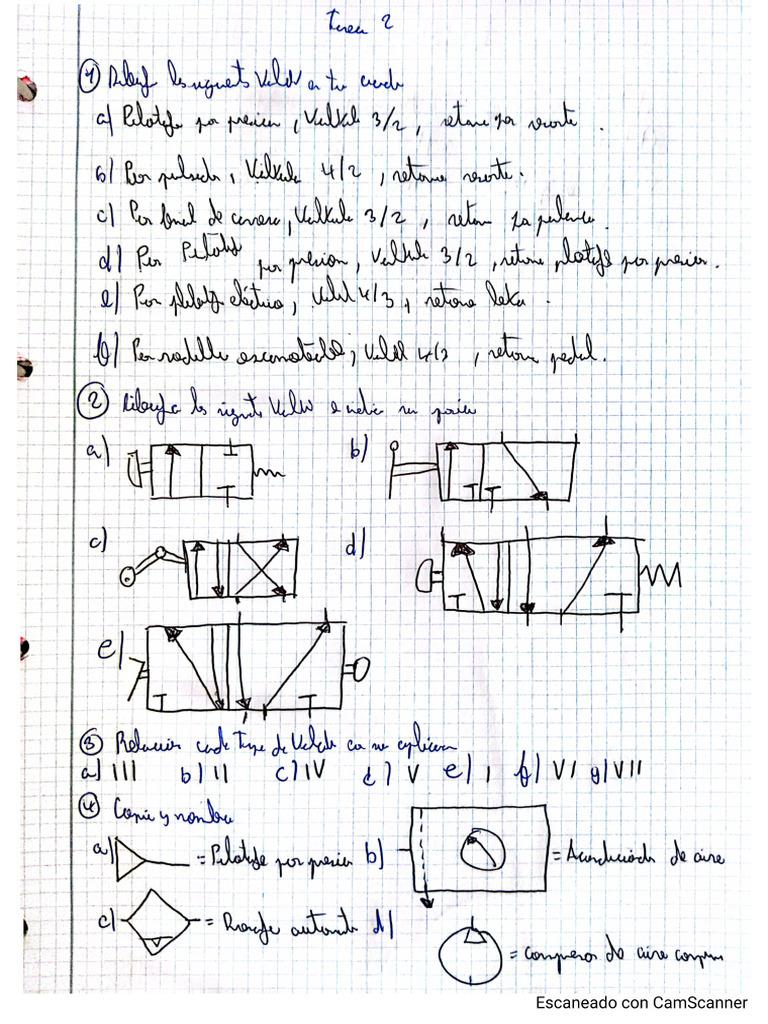 Tarea 2
1 Dibuja los siguientes Valvulas en tu cuaderno
a) Pilotaje por presion, Valvula 3/2, retorno por resorte.
b) Por pulsador, Válvula 4/2, retorno resorte.
c) Por final de carrera, Valvula 3/2, retorno por
d) Por Pilotaje por presion, Valvula 3/2, retorno pilotaje por presion.
e) Por pilotaje eléctrico, Valvul 4/3, retorno
f) Por rodillo escamoteable, Valvul 4/2, retorno pedal.
2 Dibuja los siguientes Valvulas e indica su
a) b)
c) d)
e)
3 Relaciona cada Tipo de Valvula con su
a) III b) II c) IV d) V e) I f) VI g) VII
4 Copia y nombra
a) = Pilotaje por presion b) = Acondicionado de aire
c) = Purga automatica d)
= compresor de aire
Escaneado con CamScanner